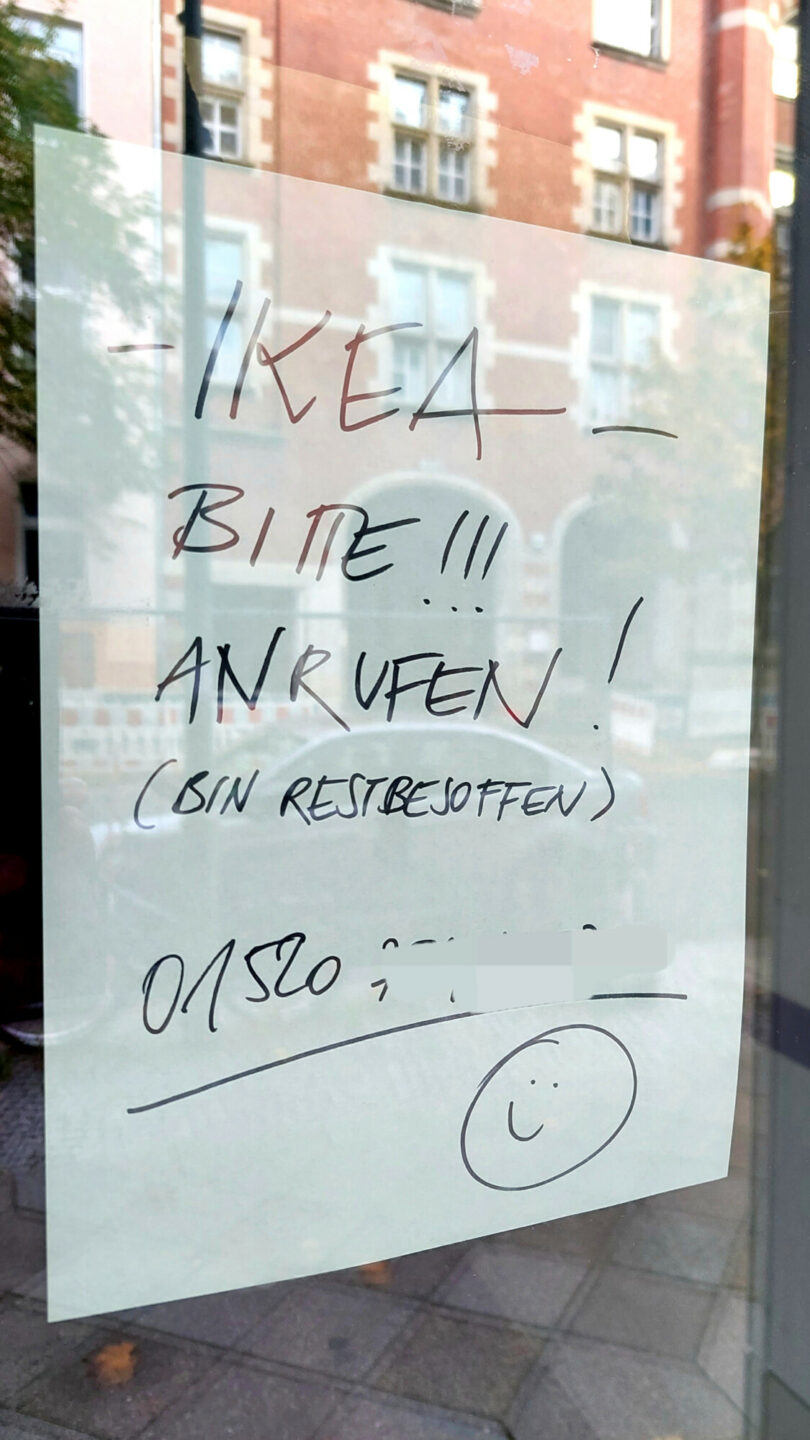 - IKEA -
BITTE !!!
ANRUFEN !
(BIN RESTBESOFFEN)
01520